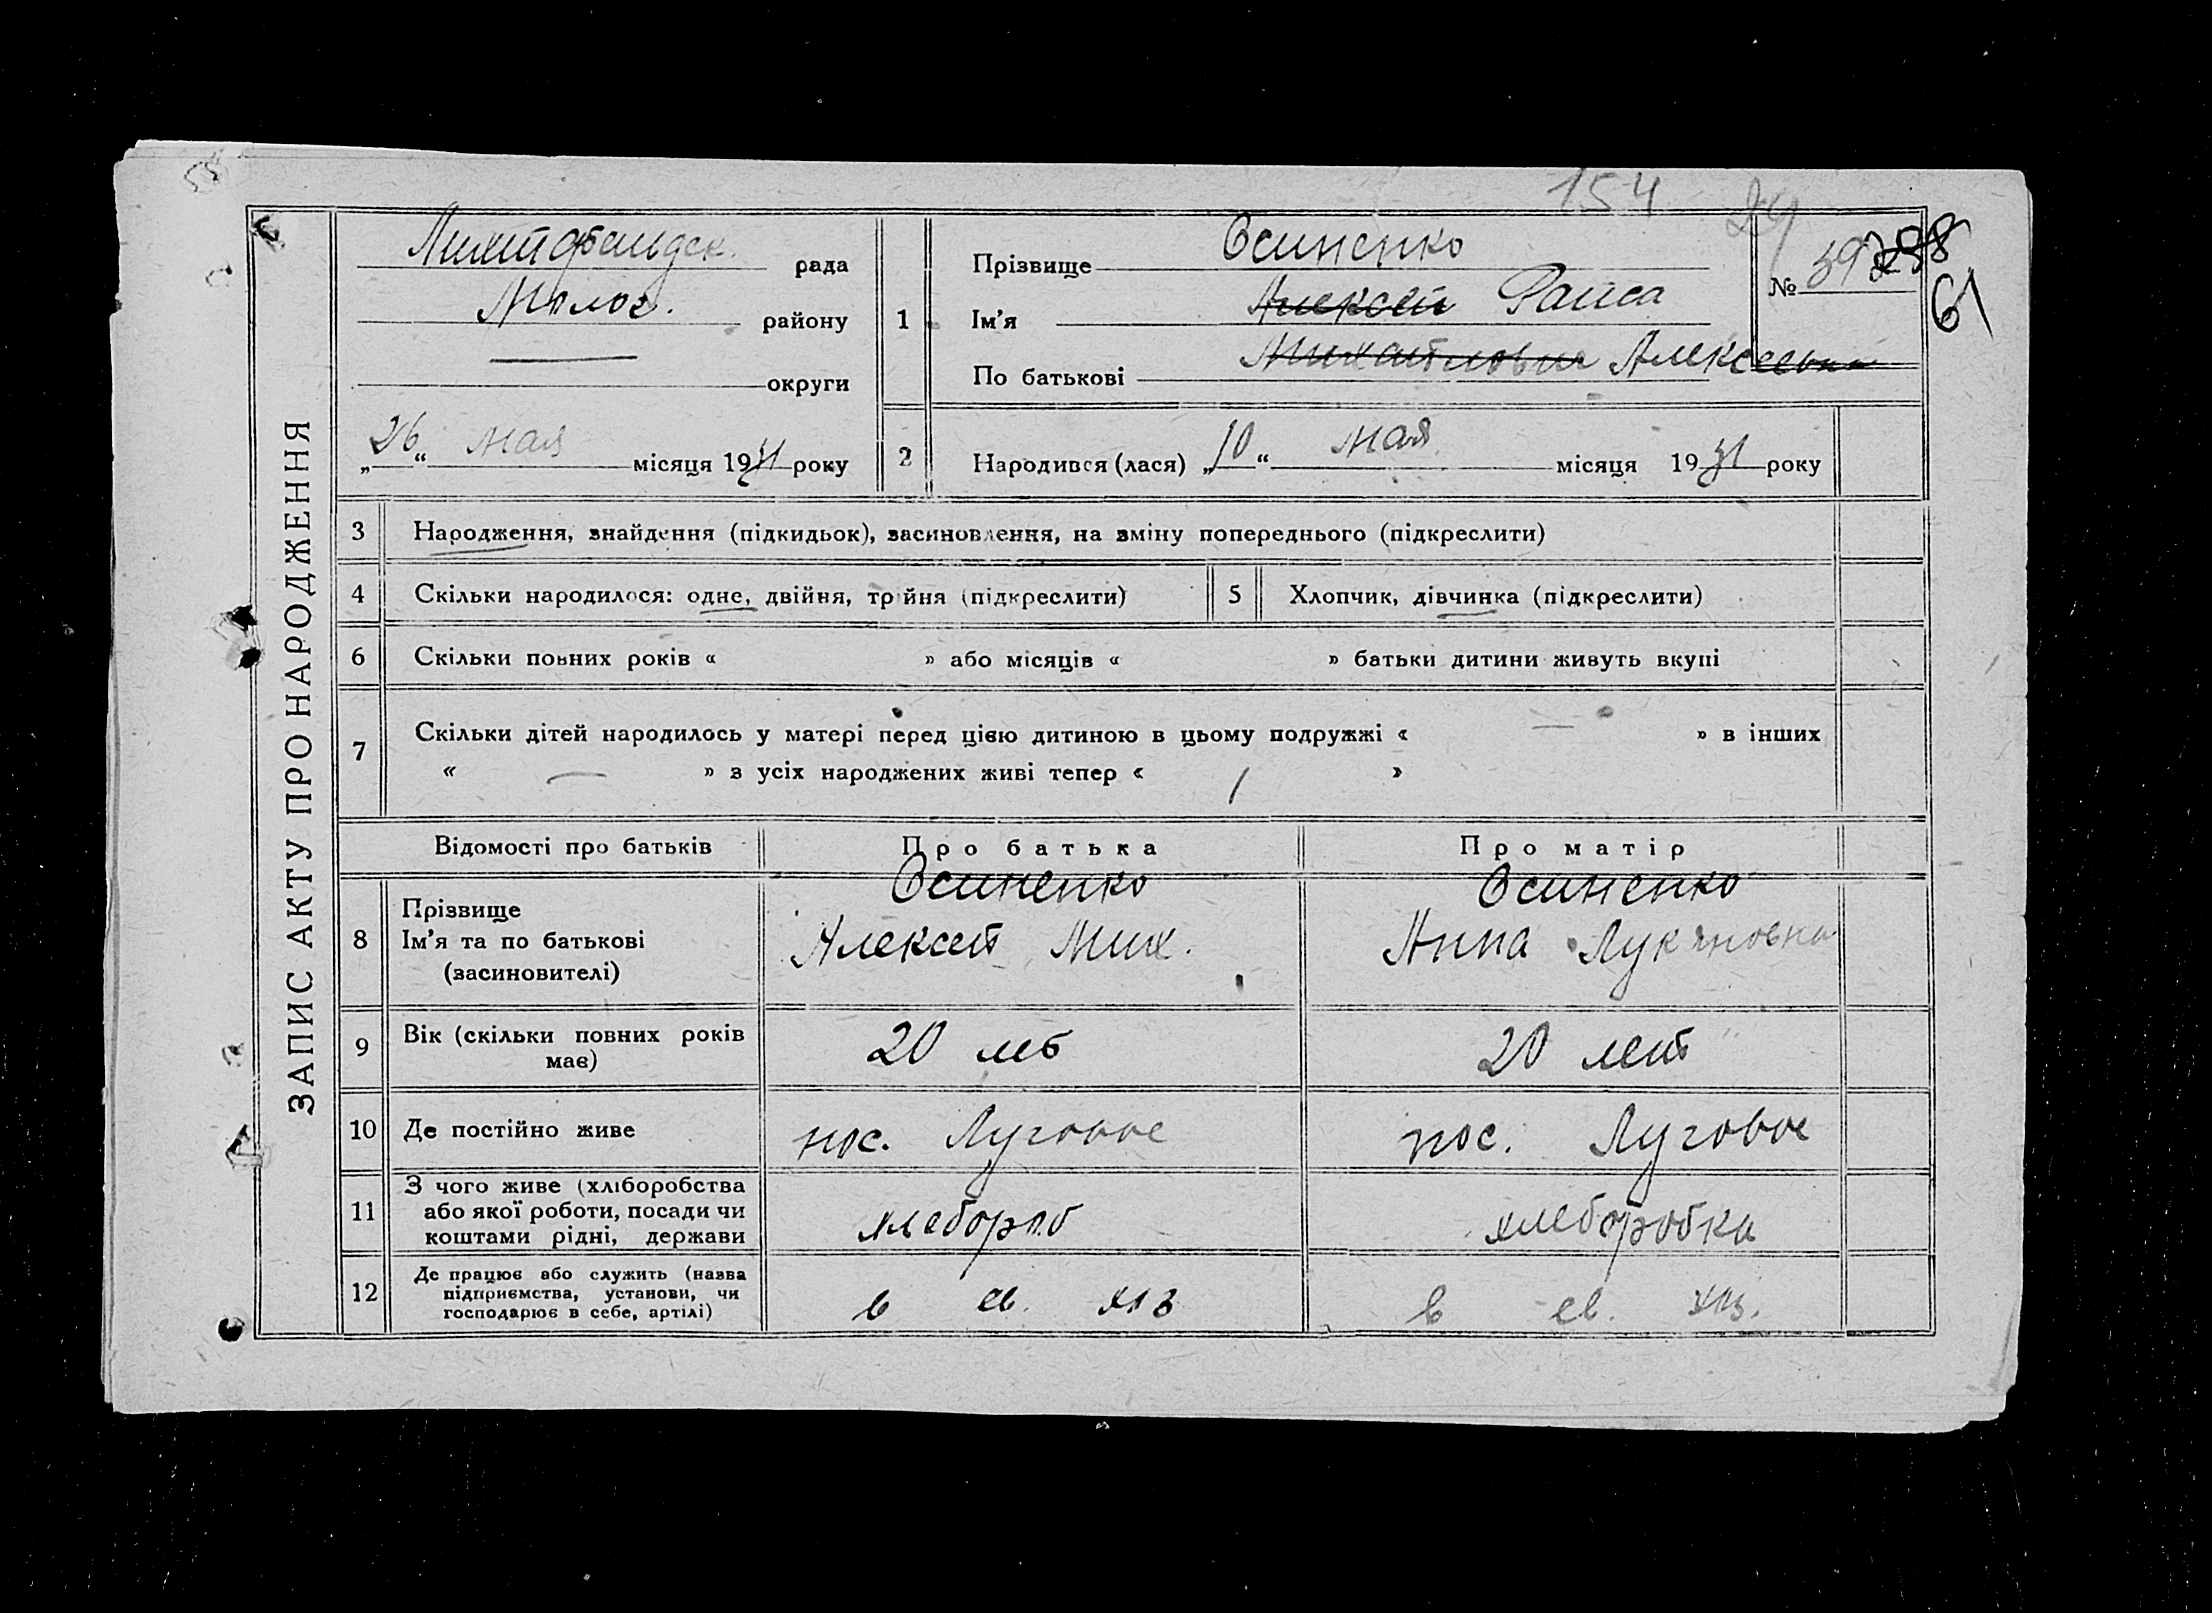 154
ЗАПИС АКТУ ПРО НАРОДЖЕННЯ
Лихтфельдск. рада
Молоч. району
округи
„26“ мая місяця 1931 року
1
Прізвище Осиненко
Ім'я Алексей Раиса
По батькові Михайловна Алексеевна
№ 39
61
2 Народився (лася) „10“ мая місяця 1931 року
3 Народження, знайдення (підкидьок), засиновлення, на зміну попереднього (підкреслити)
4 Скільки народилося: одне, двійня, трійня (підкреслити)
5 Хлопчик, дівчинка (підкреслити)
6 Скільки повних років « » або місяців « » батьки дитини живуть вкупі
7 Скільки дітей народилось у матері перед цією дитиною в цьому подружжі « — » в інших
« — » з усіх народжених живі тепер « 1 »
Відомості про батьків
Про батька
Про матір
8 Прізвище
Ім'я та по батькові
(засиновителі)
Осиненко
Алексей Мих.
Осиненко
Анна Лукяновна
9 Вік (скільки повних років
має)
20 лет
20 лет
10 Де постійно живе
пос. Луговое
пос. Луговое
11 З чого живе (хліборобства
або якої роботи, посади чи
коштами рідні, держави
хлебороб
хлеборобка
12 Де працює або служить (назва
підприємства, установи, чи
господарює в себе, артілі)
в св. хоз
в св. хоз.